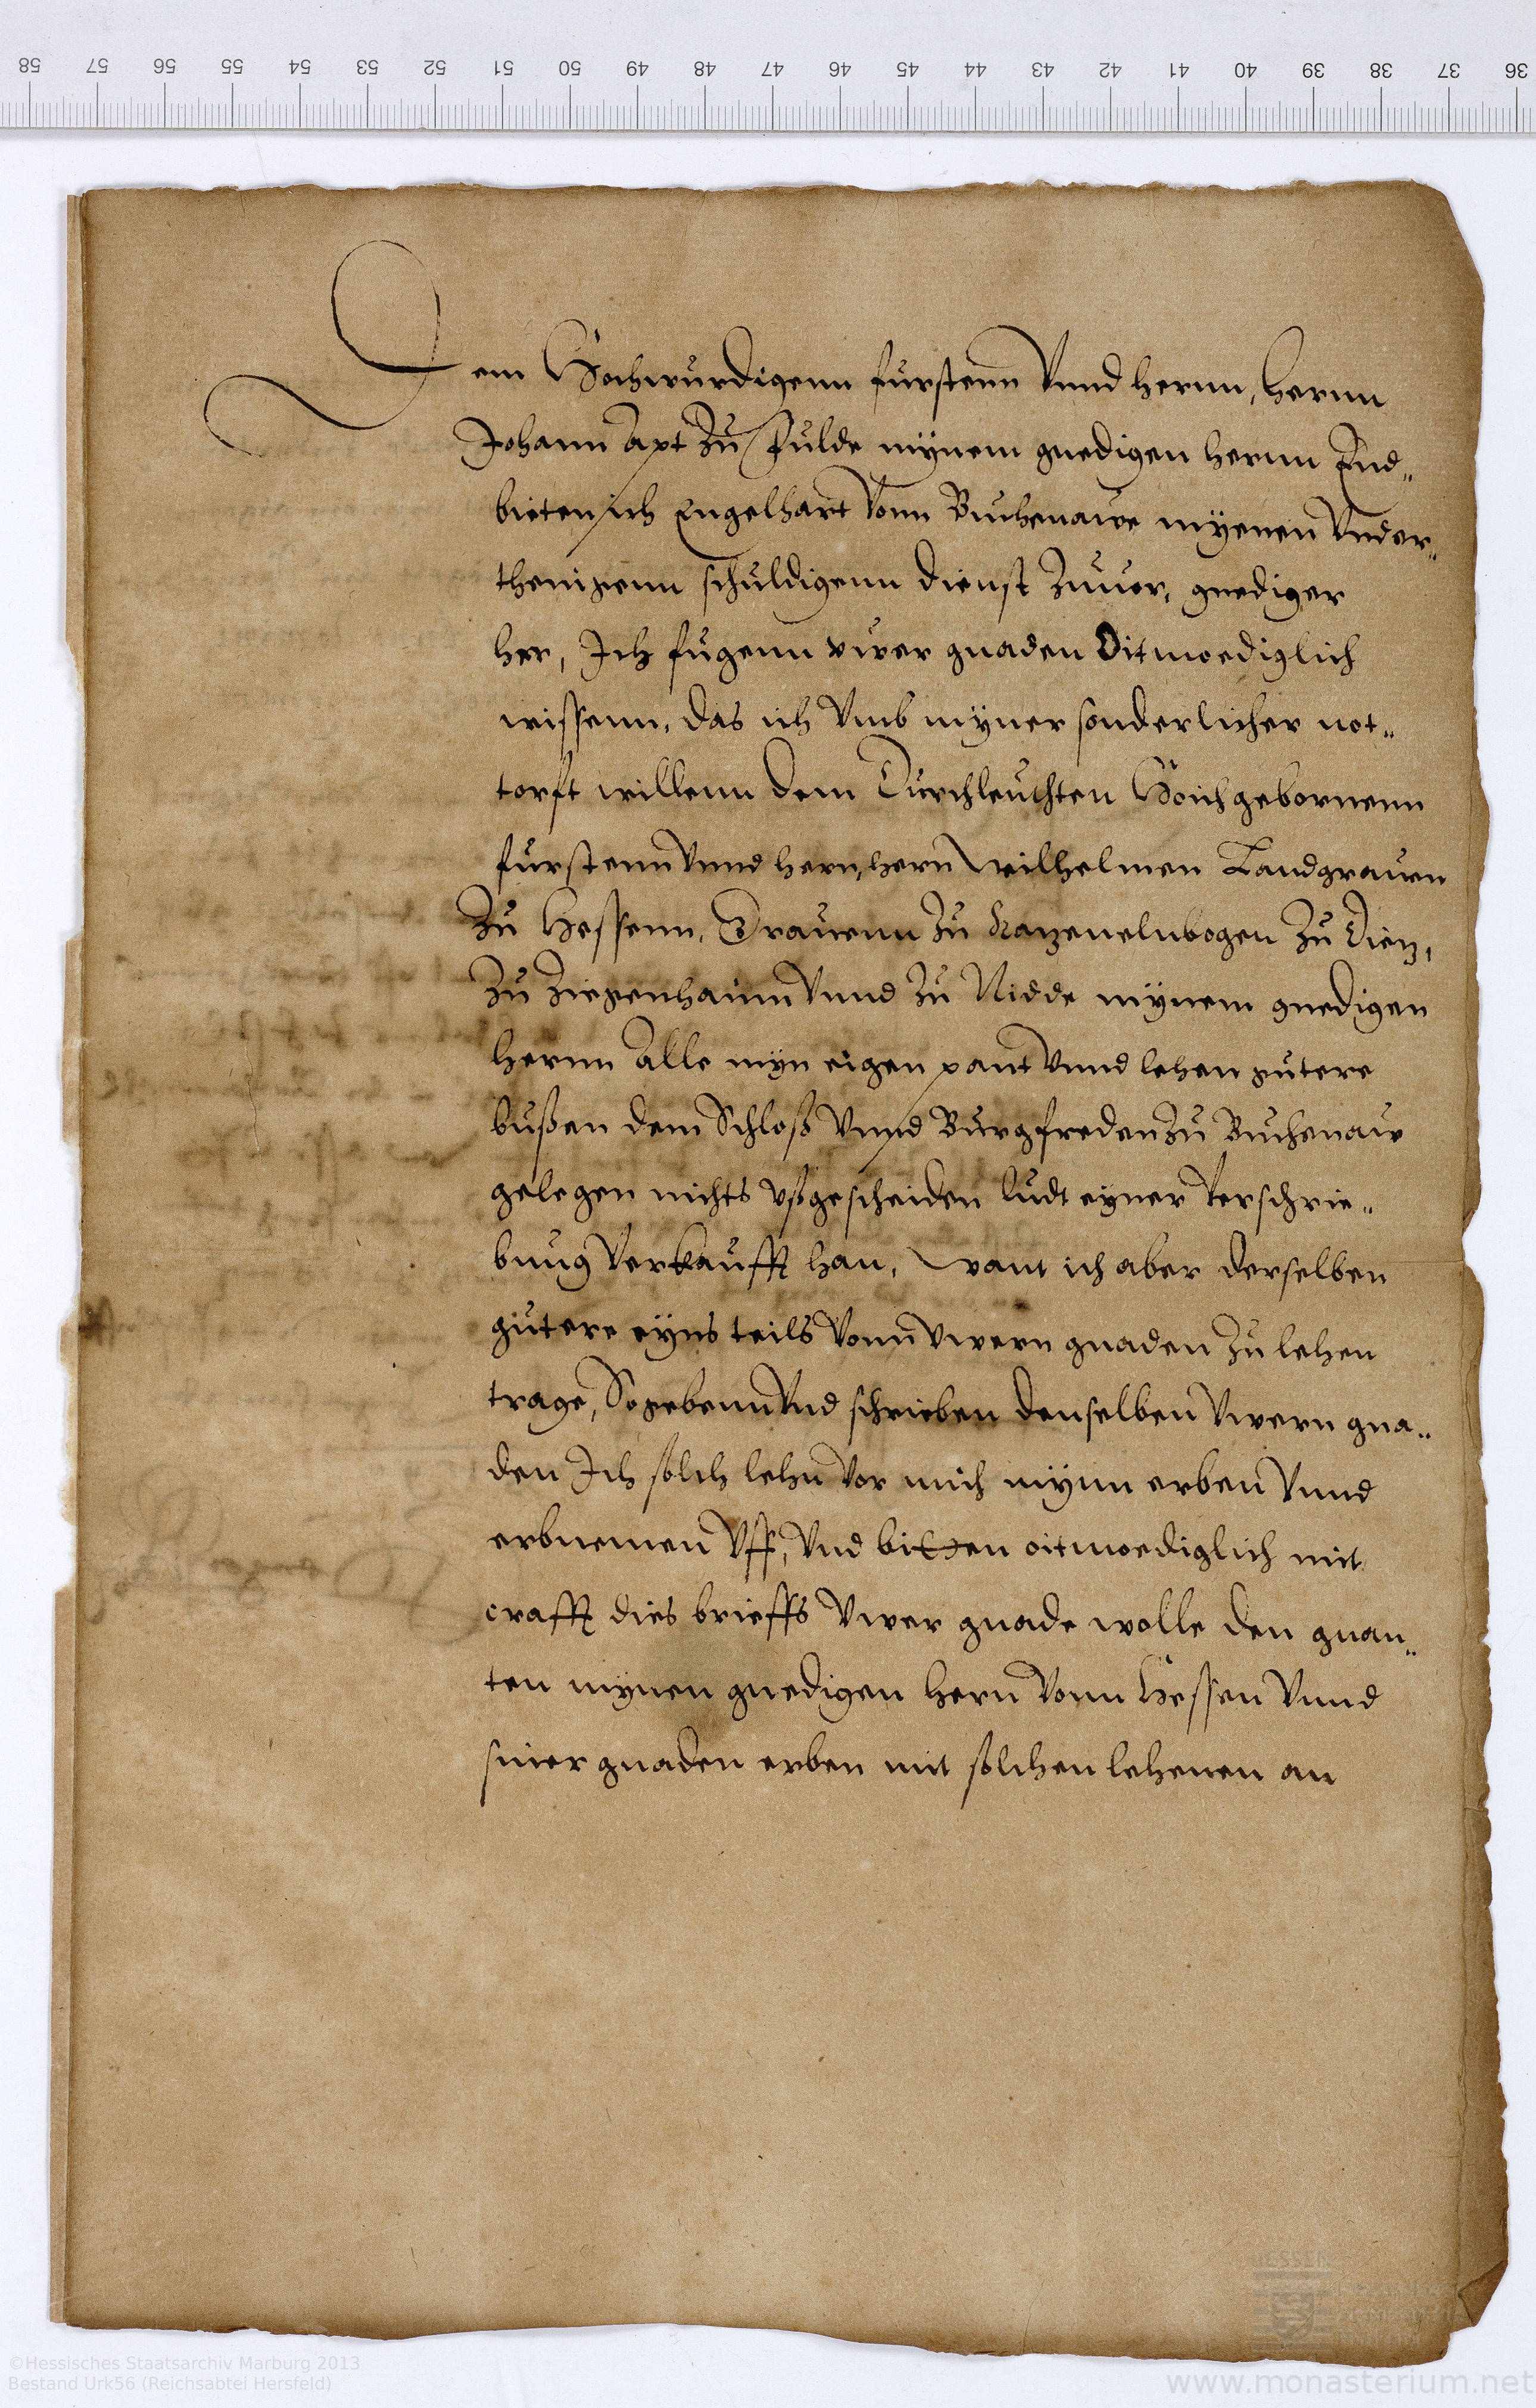 58 57 56 55 54 53 52 51 50 49 48 47 46 45 44 43 42 41 40 39 38 37 36
Dem Hochwurdigenn furstenn Vnnd hernn, hernn
Johann Apt zu Fulde mÿnem gnedigen hernn End„
bieten ich Engelhart vonn Buchenawe mÿenen Vnder„
thenigenn schuldigenn dienst zuuor, gnediger
her, Ich fugenn vwer gnaden Oitmoediglich
wissenn, das ich Vmb mÿner sonderlicher not„
torfft willenn dem Durchleuchten Hoichgebornenn
furstenn Vnnd hern, hern Wilhelmen Landgrauen
zu Hessenn, Grauenn zu Katzenelnbogen zu Dietz,
zu Ziegenhainn Vnnd zu Nidde mÿnem gnedigen
hernn Alle mÿn eigen pant Vnnd lehen gutere
bußen dem Schloß Vnnd Burgfreden zu Buchenaw
gelegen nichts vßgescheiden ludt eÿner Verschrie„
bung Verkaufft han, Want ich aber derselben
gutere eÿns teils Vonn Vwern gnaden zu lehen
trage, So gebenn Vnd schrieben denselben Vwern gna„
den Ich solch lehn Vor mich mÿnn erben Vnnd
erbnemen Vff, Vnd bitten oitmoediglich mit
crafft dies brieffs Vwer gnade wolle den gnan„
ten mÿnen gnedigen hern Vonn Hessen Vnnd
siner gnaden erben mit solchen lehenen an
©Hessisches Staatsarchiv Marburg 2013
Bestand Urk56 (Reichsabtei Hersfeld)
www.monasterium.net